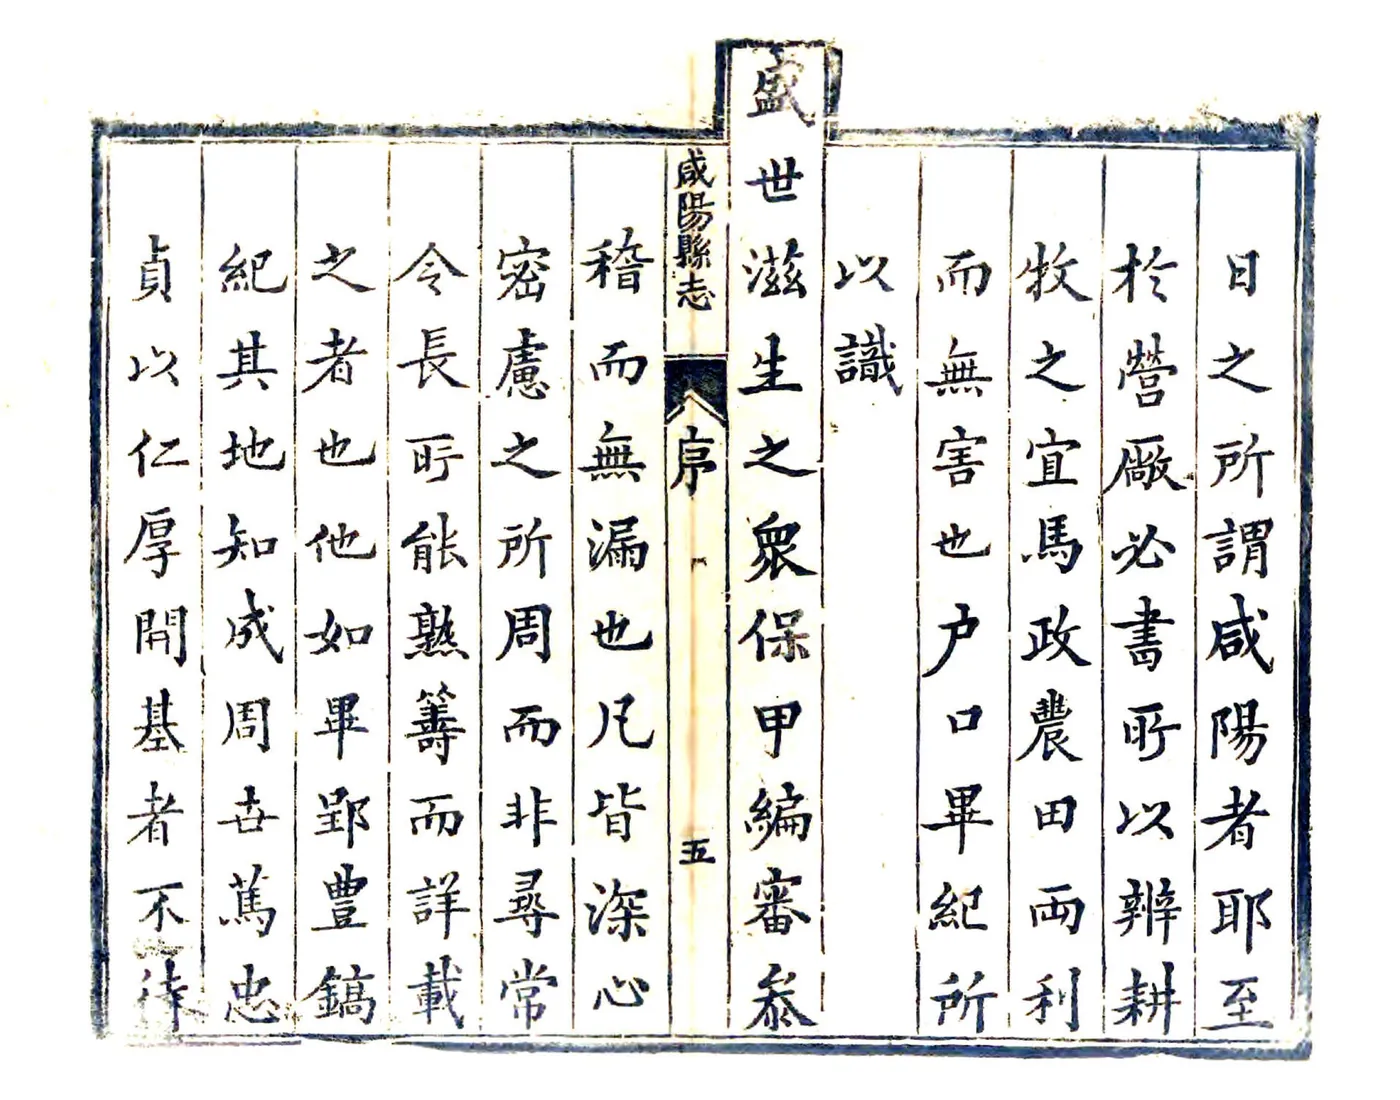 日之所謂咸陽者耶至
於營厰必書所以辨耕
牧之宜馬政農田兩利
而無害也户口畢紀所
以識
盛世滋生之衆保甲編審叅
咸陽縣志
序
五
稽而無漏也凡皆深心
密慮之所周而非尋常
令長所能熟籌而詳載
之者也他如畢郢豊鎬
紀其地知成周世篤忠
貞以仁厚開基者不待